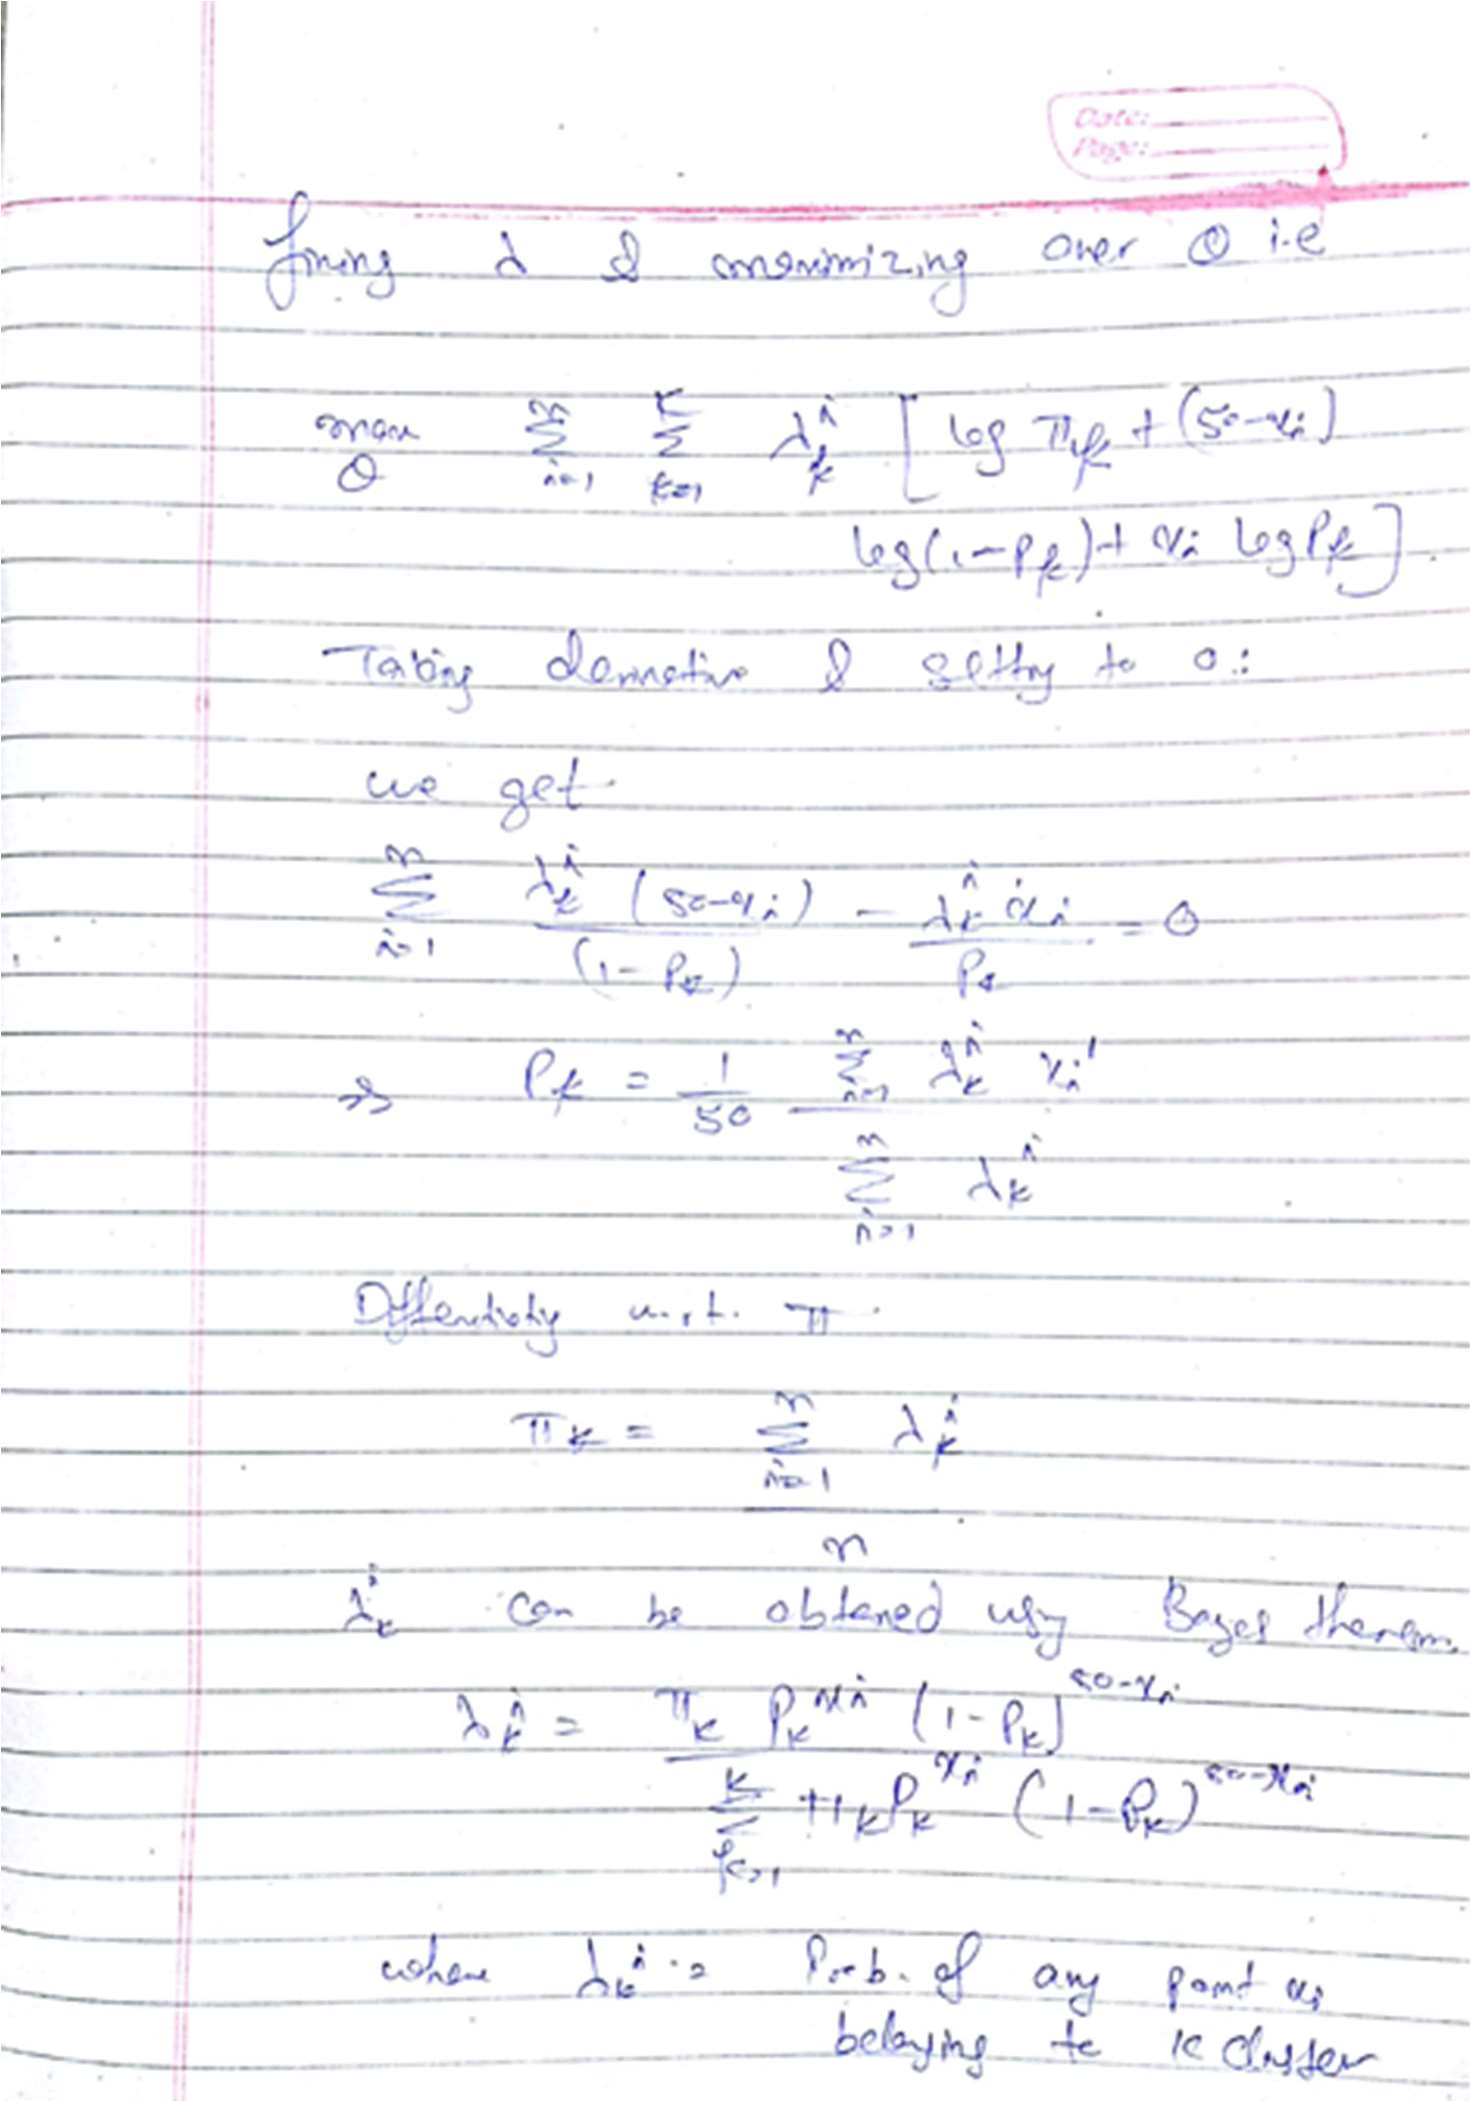 Date:
Page:
fixing λ & maximizing over θ i.e
max θ Σ_{i=1}^{n} Σ_{k=1}^{K} λ_k^i [ log π_k + (50-x_i)
log(1-P_k) + x_i log P_k ]
Taking derivative & setting to 0:
we get
Σ_{i=1}^{n} λ_k^i (50-x_i) / (1-P_k) - λ_k^i x_i / P_k = 0
⇒ P_k = 1/50 Σ_{i=1}^{n} λ_k^i x_i / Σ_{i=1}^{n} λ_k^i
Differentiating w.r.t. π
π_k = Σ_{i=1}^{n} λ_k^i / n
λ_k^i can be obtained using Bayes theorem.
λ_k^i = π_k P_k^{x_i} (1-P_k)^{50-x_i} / Σ_{k=1}^{K} π_k P_k^{x_i} (1-P_k)^{50-x_i}
where λ_k^i = Prob. of any point x_i
belonging to k cluster